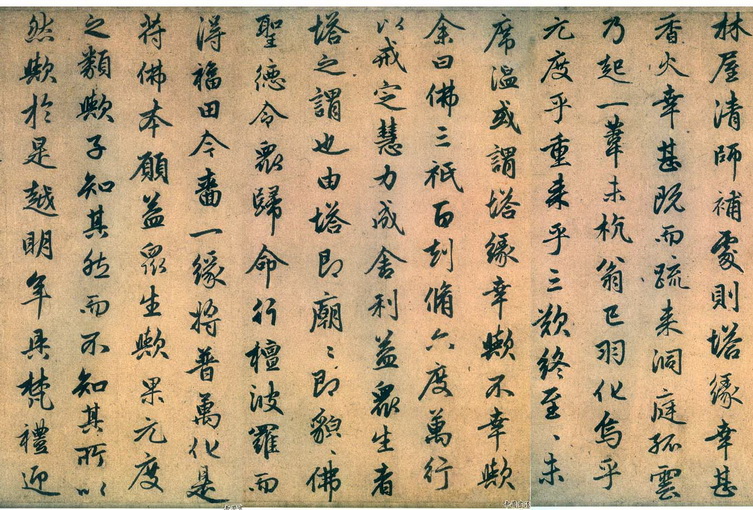 林屋清師補處則塔緣幸甚
香火幸甚既而疏来洞庭孤雲
乃起一葦未杭翁已羽化烏乎
元度乎重来乎三歎終至〻未
席溫或謂塔緣幸歟不幸歟
余曰佛三祇百刼脩六度萬行
以戒定慧力成舎利益衆生者
塔之謂也由塔即廟〻即貌〻佛
聖德令衆歸命行檀波羅而
得福田今啬一緣將普萬化是
符佛本願益衆生歟果元度
之類歟子知其然而不知其所以
然歟於是越明年具梵禮迎